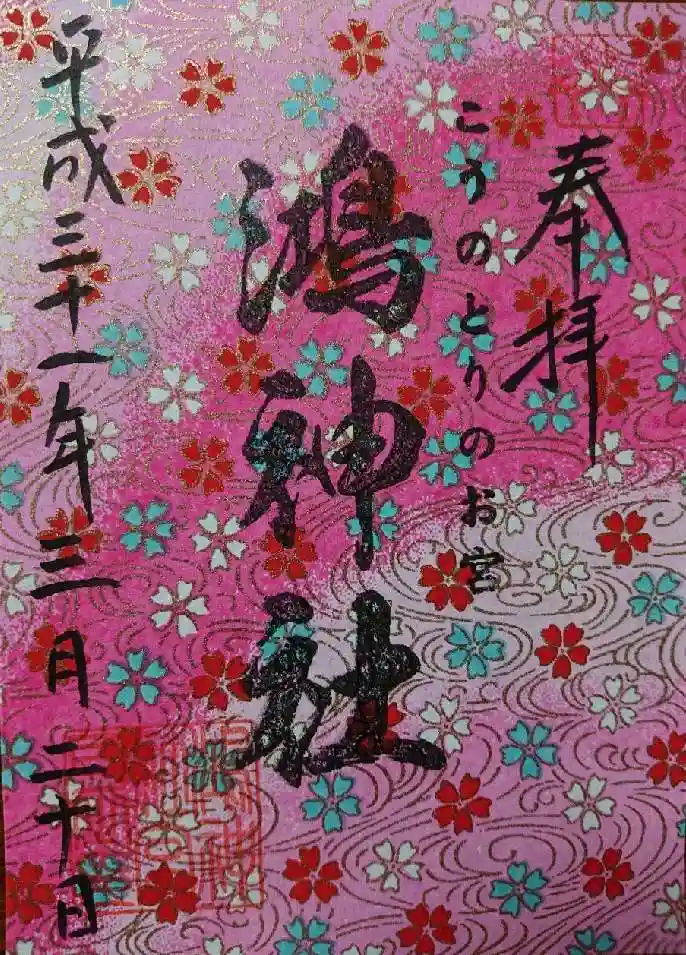 奉拝
こうのとりのお宮
鴻神社
平成三十一年三月二十日